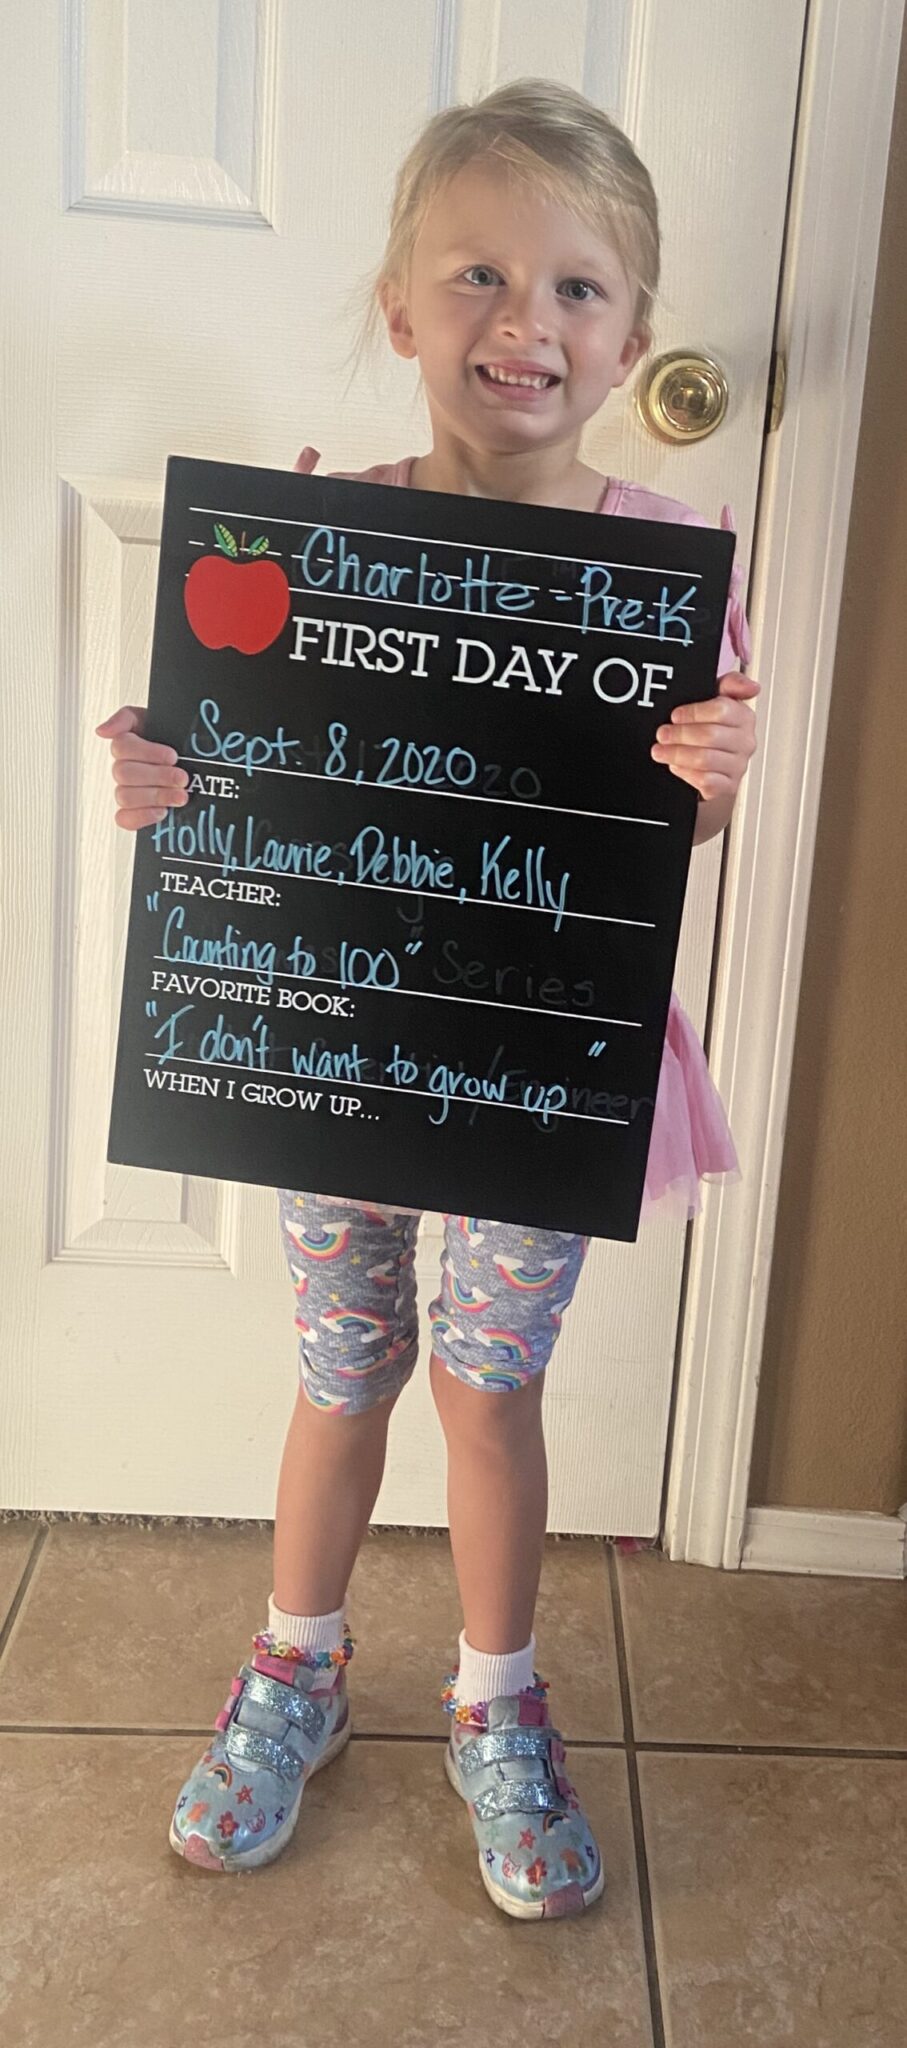 Charlotte - Pre-K
FIRST DAY OF
Sept. 8, 2020
20
ATE:
Holly, Laurie, Debbie, Kelly
TEACHER:
"Counting to 100" Series
FAVORITE BOOK:
"I don't want to grow up"
/Engineer
WHEN I GROW UP...